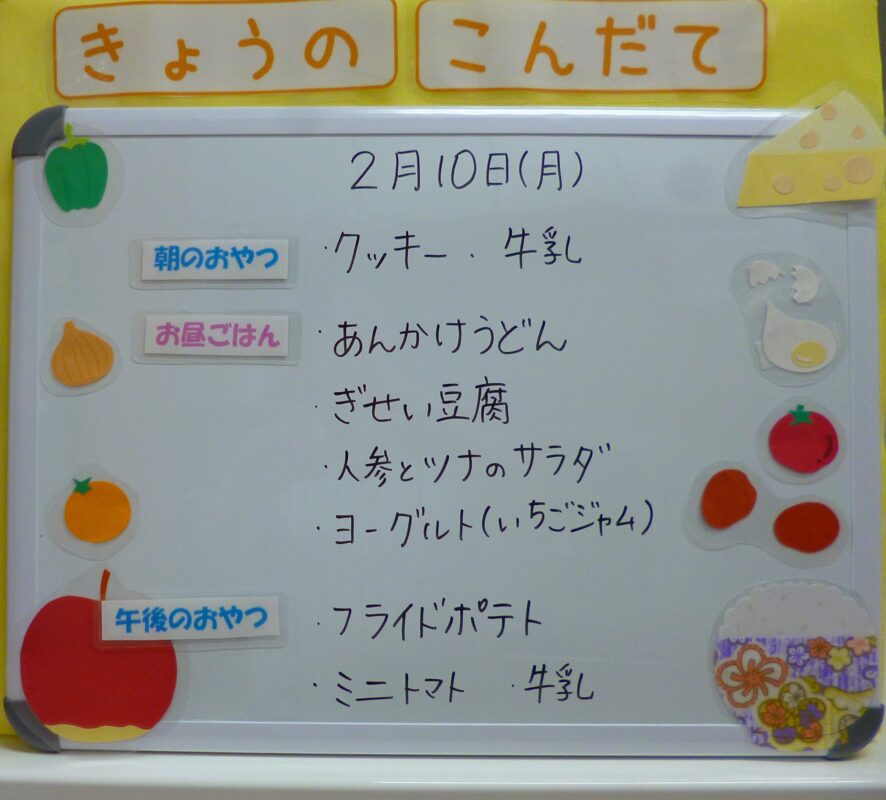 きょうの こんだて
2月10日(月)
朝のおやつ ・クッキー ・ 牛乳
お昼ごはん ・あんかけうどん
・ぎせい豆腐
・人参とツナのサラダ
・ヨーグルト(いちごジャム)
午後のおやつ ・フライドポテト
・ミニトマト ・牛乳